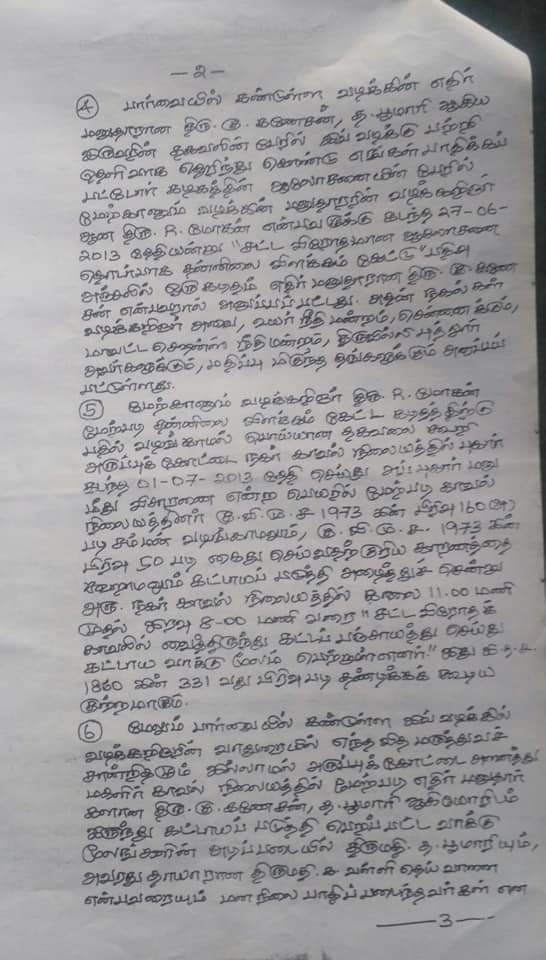 — 2 —
④ பார்வையில் கண்டுள்ள வழக்கின் எதிர்
மனுதாரான திரு. கு. கணேசன், த. பூமாரி ஆகிய
இருவரின் தகவலின் பேரில் இவ் வழக்கு பற்றி
தெளிவாக தெரிந்து கொண்டு எங்கள் பாதிக்கப்
பட்டோர் கழகத்தின் ஆலோசனையின் பேரில்
மேற்காணும் வழக்கின் மனுதாரரின் வழக்கறிஞர்
ஆன திரு. R. மோகன் என்பவருக்கு கடந்த 27-06-
2013 தேதியன்று "சட்ட விரோதமான ஆலோசனை
தொடர்பாக தன்னிலை விளக்கம் கேட்டு" பதிவு
அஞ்சலில் ஒரு கடிதம் எதிர் மனுதாரான திரு. கு. கணே
சன் என்பவரால் அனுப்பப்பட்டது. அதன் நகல்கள்
வழக்கறிஞர் அவை, உயர் நீதி மன்றம், சென்னைக்கும்,
மாவட்ட செசன்ஸ் நீதிமன்றம், திருவில்லிபுத்தூர்
அவர்களுக்கும், மதிப்பு மிகுந்த தங்களுக்கும் அனுப்பப்
பட்டுள்ளது.
⑤ மேற்காணும் வழக்கறிஞர் திரு. R. மோகன்
மேற்படி தன்னிலை விளக்கம் கேட்ட கடிதத்திற்கு
பதில் வழங்காமல் பொய்யான தகவலை கூறி
அருப்புக்கோட்டை நகர் காவல் நிலையத்தில் புகார்
கடந்த 01-07-2013 தேதி செய்து அப் புகார் மனு
மீது விசாரணை என்ற பெயரில் மேற்படி காவல்
நிலையத்தினர் கு. வி. மு. ச 1973 இன் பிரிவு 160(அ)
படி சம்மன் வழங்காமலும், கு. வி. மு. ச. 1973 இன்
பிரிவு 50 படி கைது செய்வதற்குரிய காரணத்தை
கூறாமலும் கட்டாயப் படுத்தி அழைத்துச் சென்று
அரு. நகர் காவல் நிலையத்தில் காலை 11.00 மணி
முதல் இரவு 8-00 மணி வரை "சட்ட விரோதக்
காவலில் வைத்திருந்து கட்டப் பஞ்சாயத்து செய்து
கட்டாய வாக்கு மூலம் பெற்றுள்ளனர்." இது இ.த.ச.
1860 இன் 331 வது பிரிவு படி தண்டிக்கக் கூடிய
குற்றமாகும்.
⑥ மேலும் பார்வையில் கண்டுள்ள இவ் வழக்கில்
வழக்கறிஞரின் வாதுரையில் எந்த வித மருத்துவச்
சான்றிதழும் இல்லாமல் அருப்புக்கோட்டை அனைத்து
மகளிர் காவல் நிலையத்தில் மேற்படி எதிர் மனுதார்
களான திரு. கு. கணேசன், த. பூமாரி ஆகியோரிடம்
இருந்து கட்டாயப் படுத்தி பெறப்பட்ட வாக்கு
மூலங்களின் அடிப்படையில் திருமதி. த. பூமாரியும்,
அவரது தாயாரான திருமதி. க. வள்ளி தெய்வானை
என்பவரையும் மன நிலை பாதிப்படைந்தவர்கள் என
— 3 —